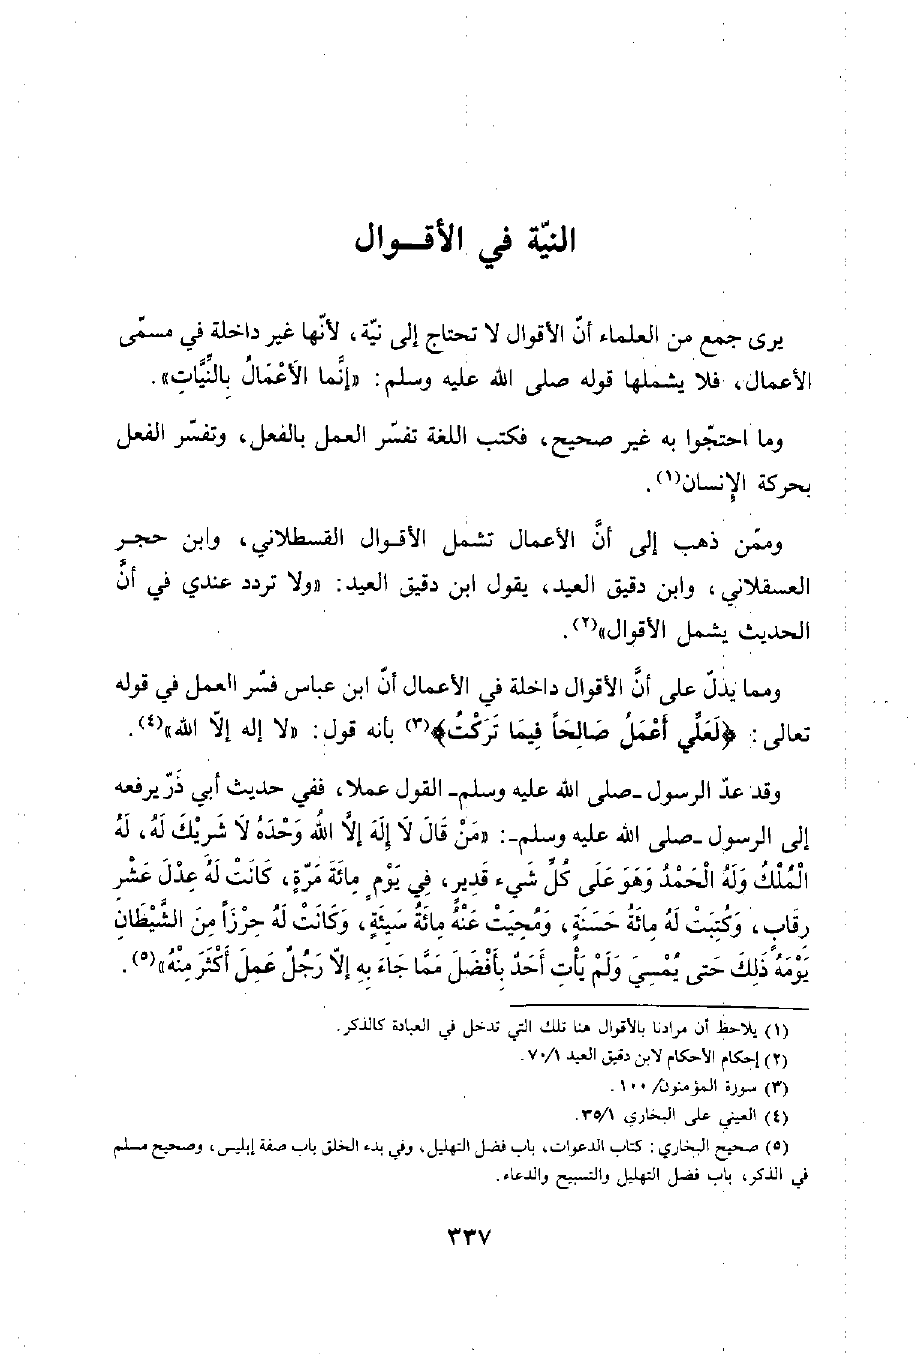 النيّة في الأقــوال
يرى جمع من العلماء أنّ الأقوال لا تحتاج إلى نيّة، لأنّها غير داخلة في مسمّى
الأعمال، فلا يشملها قوله صلى الله عليه وسلم: «إنَّما الأَعْمَالُ بِالنِّيَّاتِ».
وما احتجّوا به غير صحيح، فكتب اللغة تفسّر العمل بالفعل، وتفسّر الفعل
بحركة الإنسان(١).
وممّن ذهب إلى أنَّ الأعمال تشمل الأقوال القسطلاني، وابن حجر
العسقلاني، وابن دقيق العيد، يقول ابن دقيق العيد: «ولا تردد عندي في أنَّ
الحديث يشمل الأقوال»(٢).
ومما يدلّ على أنَّ الأقوال داخلة في الأعمال أنّ ابن عباس فسّر العمل في قوله
تعالى: ﴿لَعَلَّي أَعْمَلُ صَالِحَاً فِيمَا تَرَكْتُ﴾(٣) بأنه قول: «لا إله إلاّ الله»(٤).
وقد عدّ الرسول ـ صلى الله عليه وسلم ـ القول عملا، ففي حديث أبي ذَرّ يرفعه
إلى الرسول ـ صلى الله عليه وسلم ـ: «مَنْ قَالَ لَا إِلَهَ إِلَّا اللهُ وَحْدَهُ لَا شَرِيْكَ لَهُ، لَهُ
الْمُلْكُ وَلَهُ الْحَمْدُ وَهوَ عَلَى كُلِّ شَيء قَدِيرٍ، فِي يَوْمٍ مِائَةَ مَرّةٍ، كَانَتْ لَهُ عِدْلَ عَشْرِ
رِقَابٍ، وَكُتِبَتْ لَهُ مِائَةُ حَسَنَةٍ، وَمُحِيَتْ عَنْهُ مِائَةُ سَيئَةٍ، وَكَانَتْ لَهُ حِرْزَاً مِنَ الشَّيْطَانِ
يَوْمَهُ ذَلِكَ حَتى يُمْسِيَ وَلَمْ يَأْتِ أَحَدٌ بِأَفْضَلَ مَمَّا جَاءَ بِهِ إلاّ رَجُلٌ عَمِلَ أَكْثَرَ مِنْهُ»(٥).
(١) يلاحظ أن مرادنا بالأقوال هنا تلك التي تدخل في العبادة كالذكر.
(٢) إحكام الأحكام لابن دقيق العيد ٧٠/١.
(٣) سورة المؤمنون/ ١٠٠.
(٤) العيني على البخاري ٣٥/١.
(٥) صحيح البخاري: كتاب الدعوات، باب فضل التهليل، وفي بدء الخلق باب صفة إبليس، وصحيح مسلم
في الذكر، باب فضل التهليل والتسبيح والدعاء.
٣٣٧